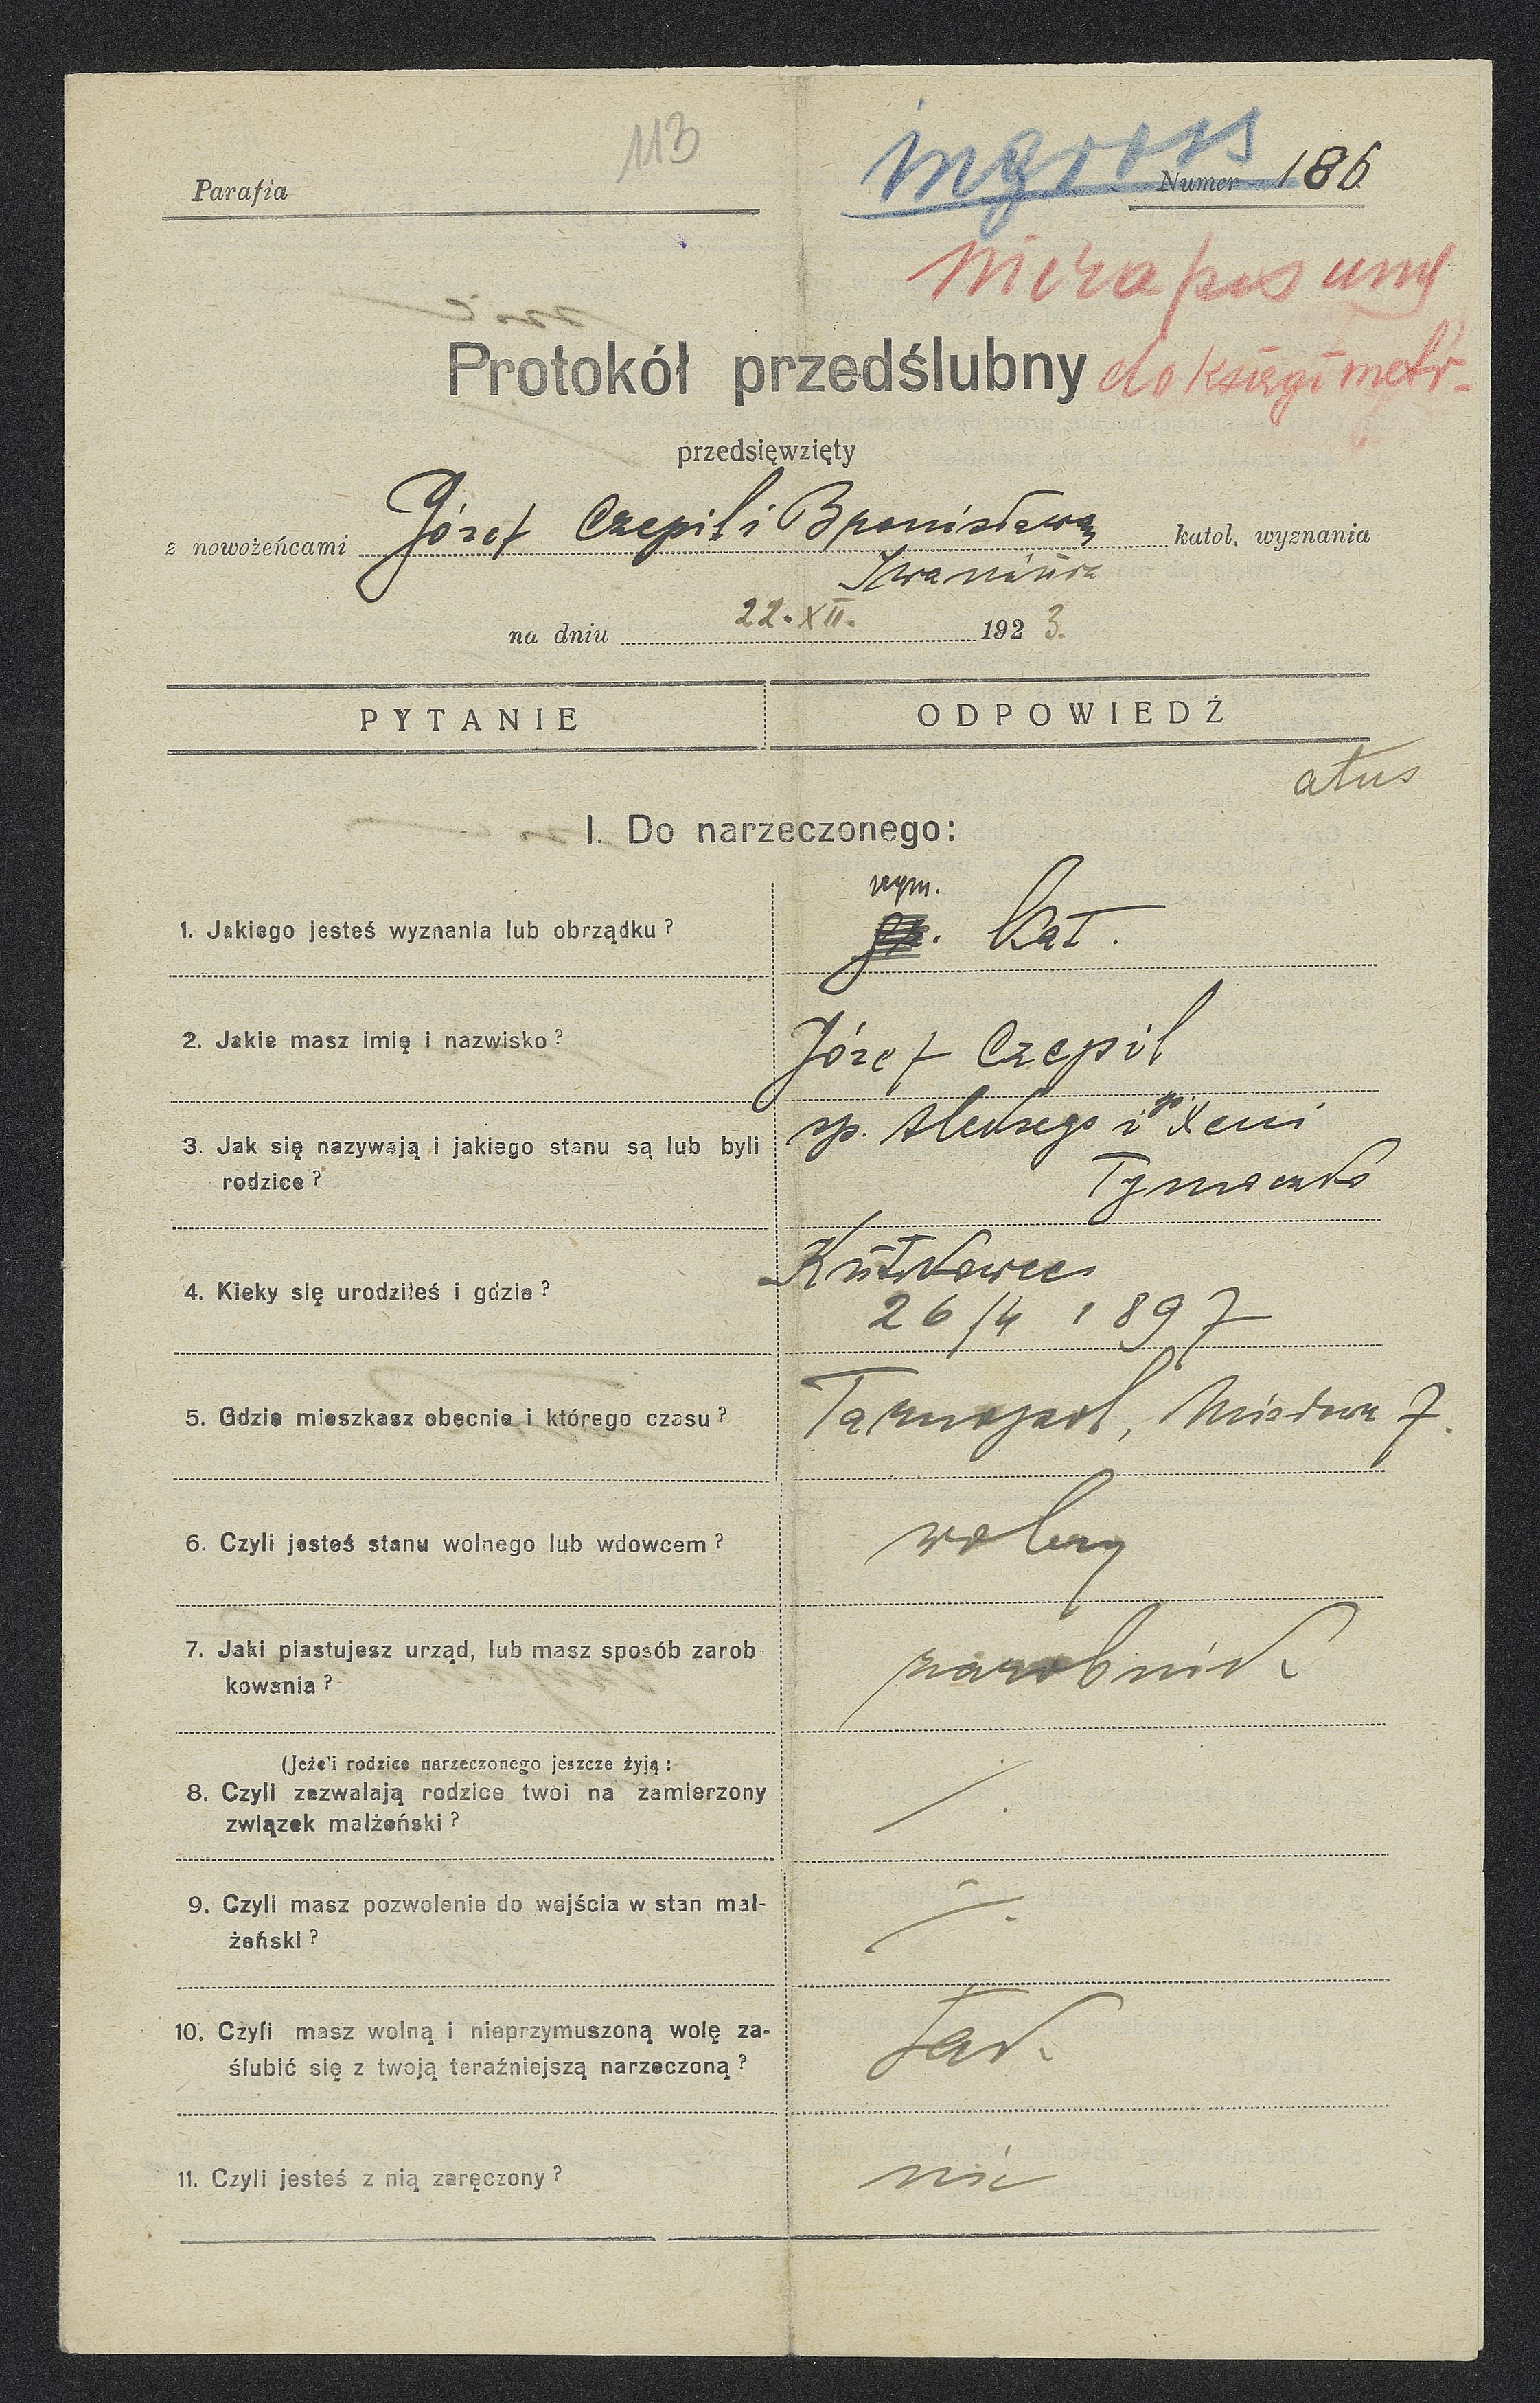 113
ingross
Parafia
Numer 186
niezapisany
Protokół przedślubny do księgi metr.
przedsięwzięty
z nowożeńcami Józef Czepil i Bronisława katol. wyznania
na dniu 22. XII. 1923.
PYTANIE ODPOWIEDŹ
atus
I. Do narzeczonego:
rzym.
1. Jakiego jesteś wyznania lub obrządku? gr. kat.
2. Jakie masz imię i nazwisko? Józef Czepil
3. Jak się nazywają i jakiego stanu są lub byli sp. Aleksego i sp. Xeni
rodzice?
4. Kieky się urodziłeś i gdzie? Kutkowce
26/4 1897
5. Gdzie mieszkasz obecnie i którego czasu? Tarnopol, 7.
6. Czyli jesteś stanu wolnego lub wdowcem? wolny
7. Jaki piastujesz urząd, lub masz sposób zarob- zarobnik.
kowania?
(Jeżeli rodzice narzeczonego jeszcze żyją:
8. Czyli zezwalają rodzice twoi na zamierzony
związek małżeński?
9. Czyli masz pozwolenie do wejścia w stan mał-
żeński?
10. Czyli masz wolną i nieprzymuszoną wolę za- Tak.
ślubić się z twoją teraźniejszą narzeczoną?
11. Czyli jesteś z nią zaręczony? nie